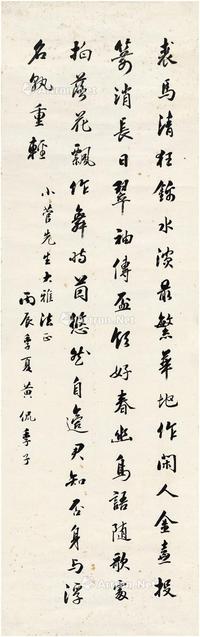 裘马清狂锦水滨最繁華地作闲人金壺投
箭消長日翠袖傳盃領好春幽鳥語随歌處
拍落花飄作舞時茵悠然自適君知否身与浮
名孰重輕
小菅先生大雅法正
丙辰季夏黄侃季子